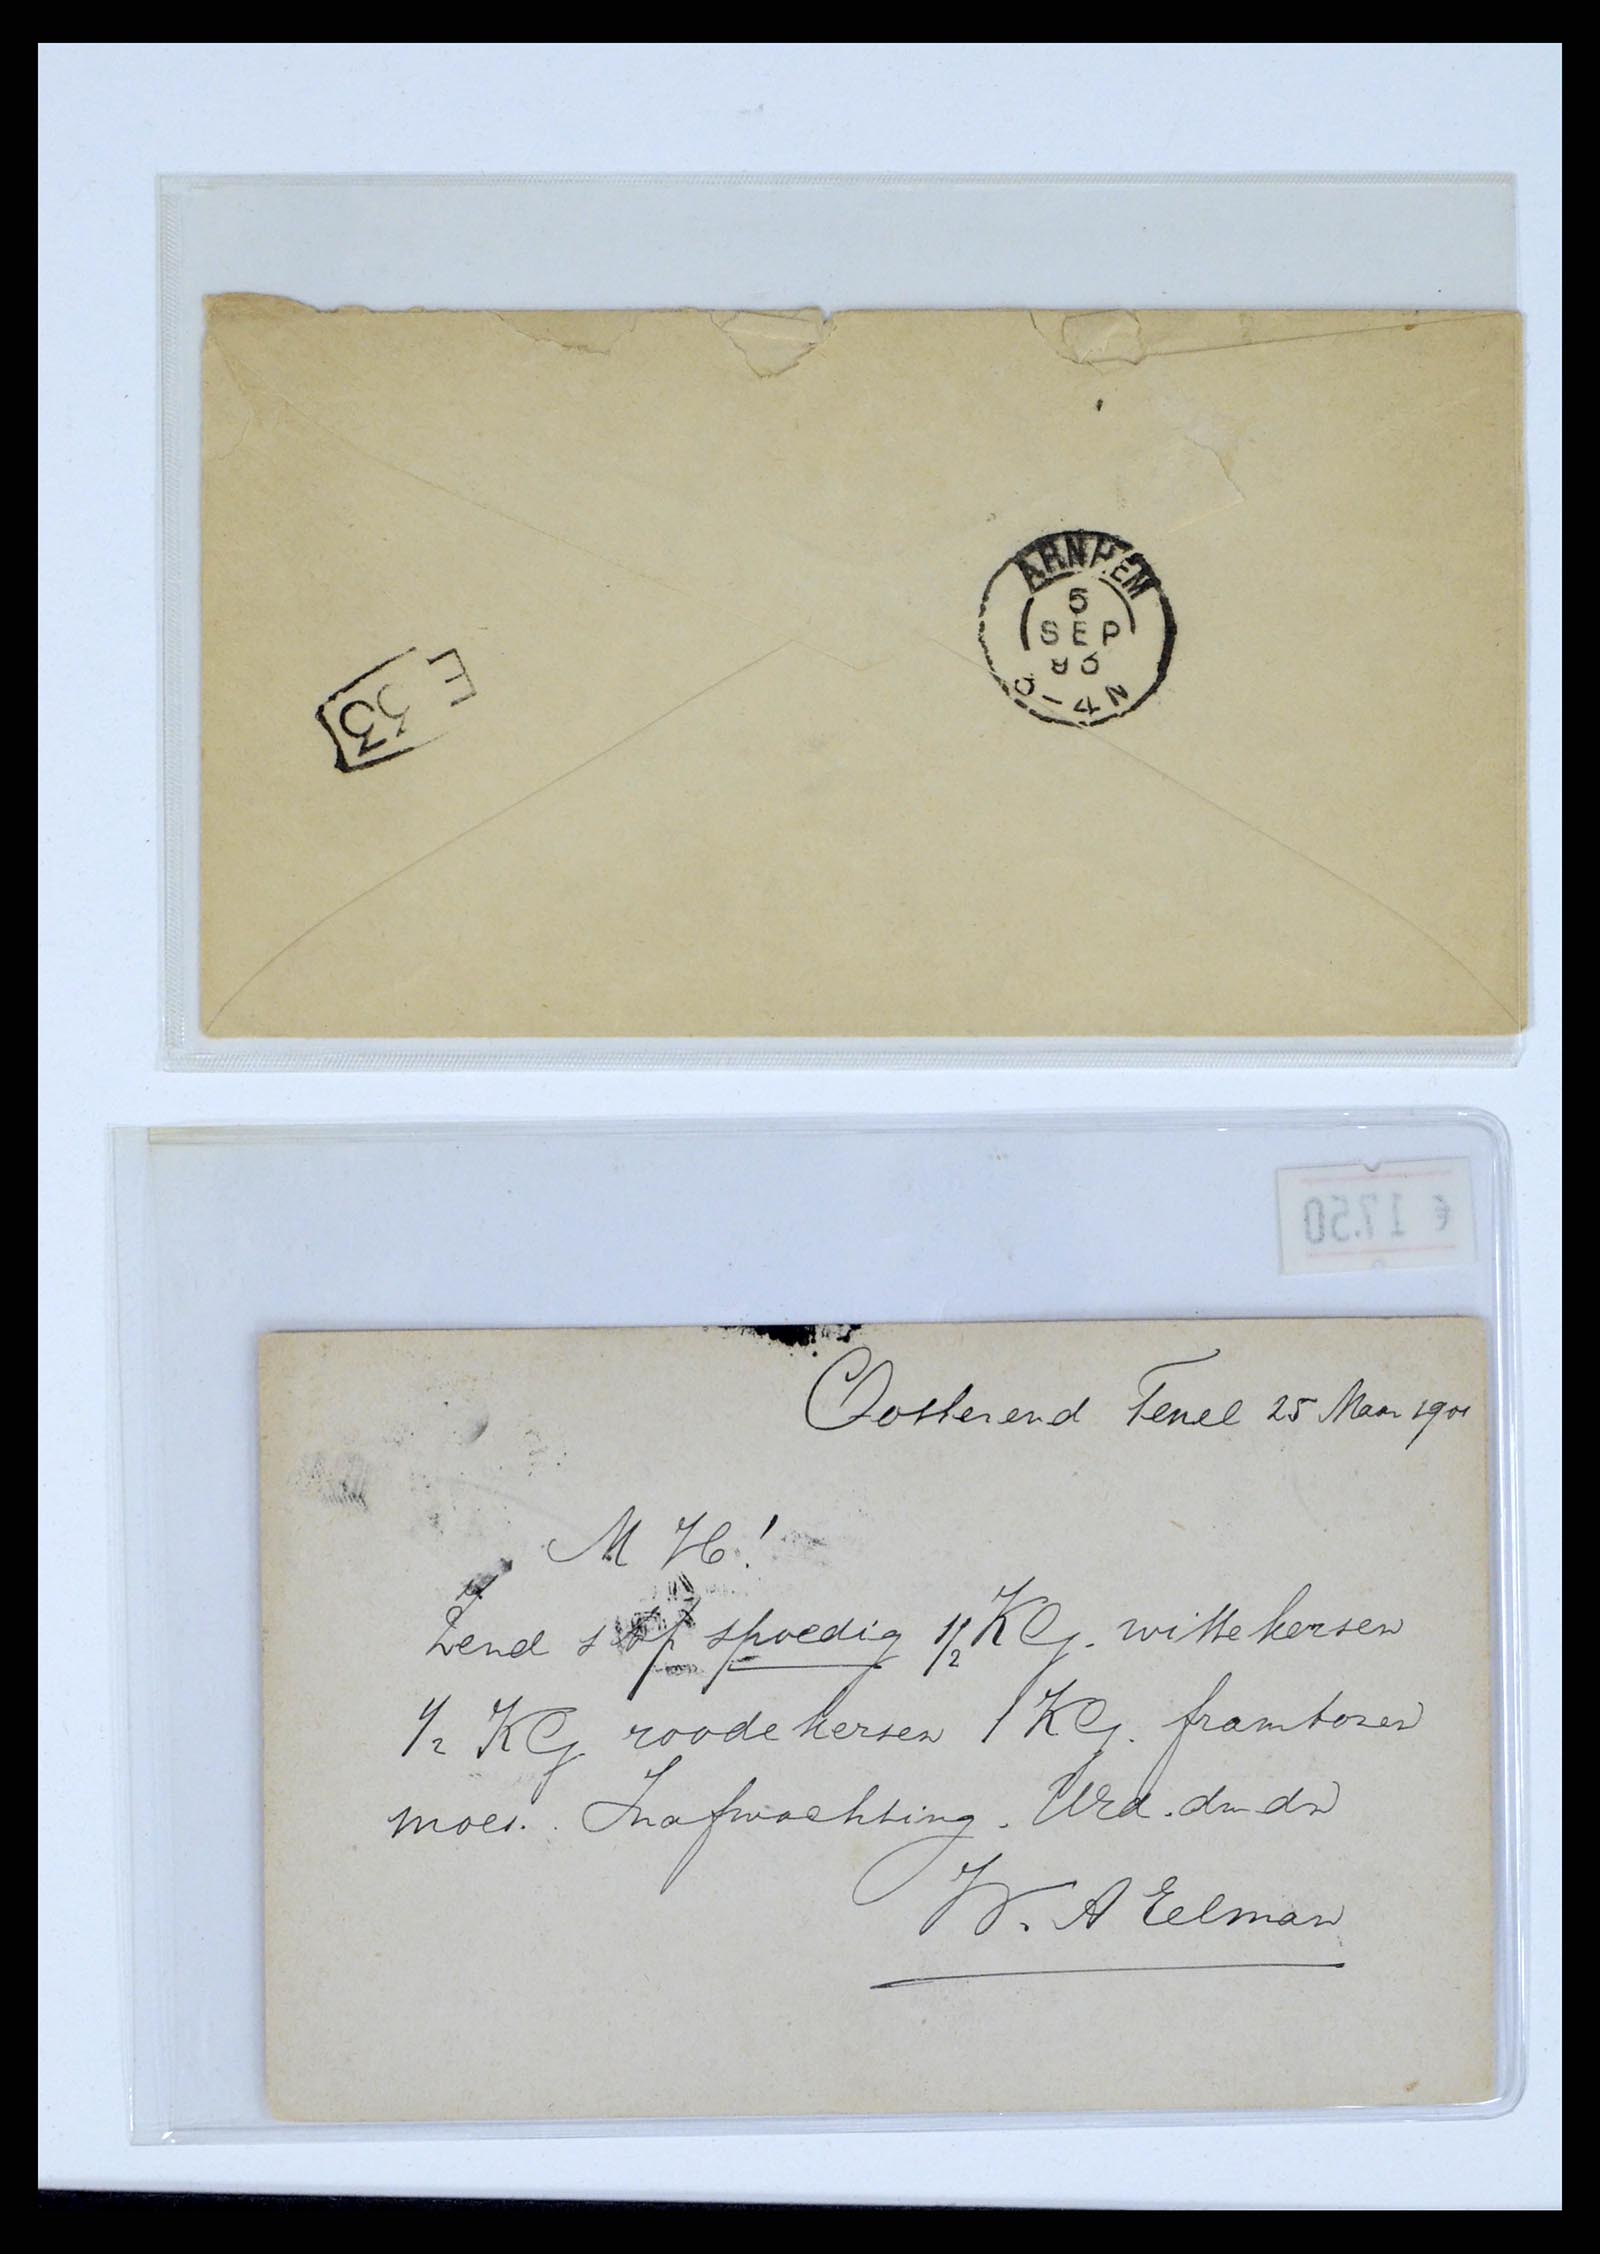 ARNHEM
5
SEP
93
4-5 N
E
33
€ 17.50
Oosterend Texel 25 Maar 1901
M H!
Zend s.v.p. spoedig 1/2 KG. witte kersen
1/2 KG roode kersen 1 KG. frambozen
moes. Inafwachting. Uwd. dw dr
W. A Eelman